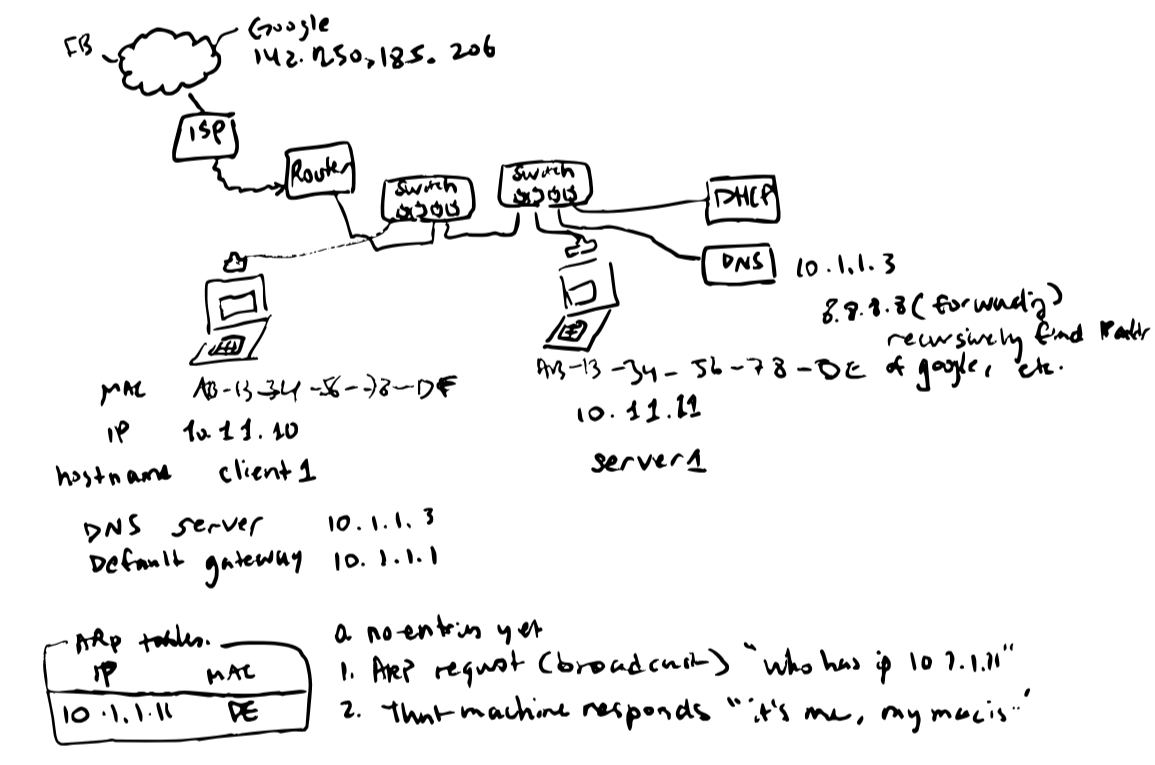 FB
Google
142.250.185.206
ISP
Router
Switch
Switch
DHCP
DNS 10.1.1.3
8.8.8.8 (forwardig)
recursively find IP addr
of google, etc.
MAC AB-13-34-56-78-DF
AB-13-34-56-78-DE
IP 10.11.10
10.11.11
hostname client1
server1
DNS server 10.1.1.3
Default gateway 10.1.1.1
ARP tables.
IP MAC
10.1.1.11 DE
no entries yet
1. ARP request (broadcast) "who has ip 10.1.1.11"
2. That machine responds "it's me, my mac is"